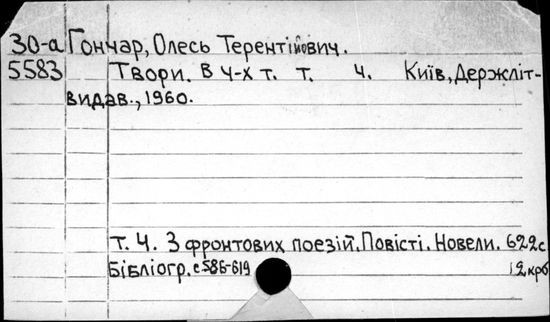 30-а Гончар, Олесь Терентійович.
5583 Твори. В 4-х т. т. 4. Київ, Держліт-
видав., 1960.
т. 4. З фронтових поезій. Повісті. Новели. 622с
Бібліогр. с586-619 12 крб